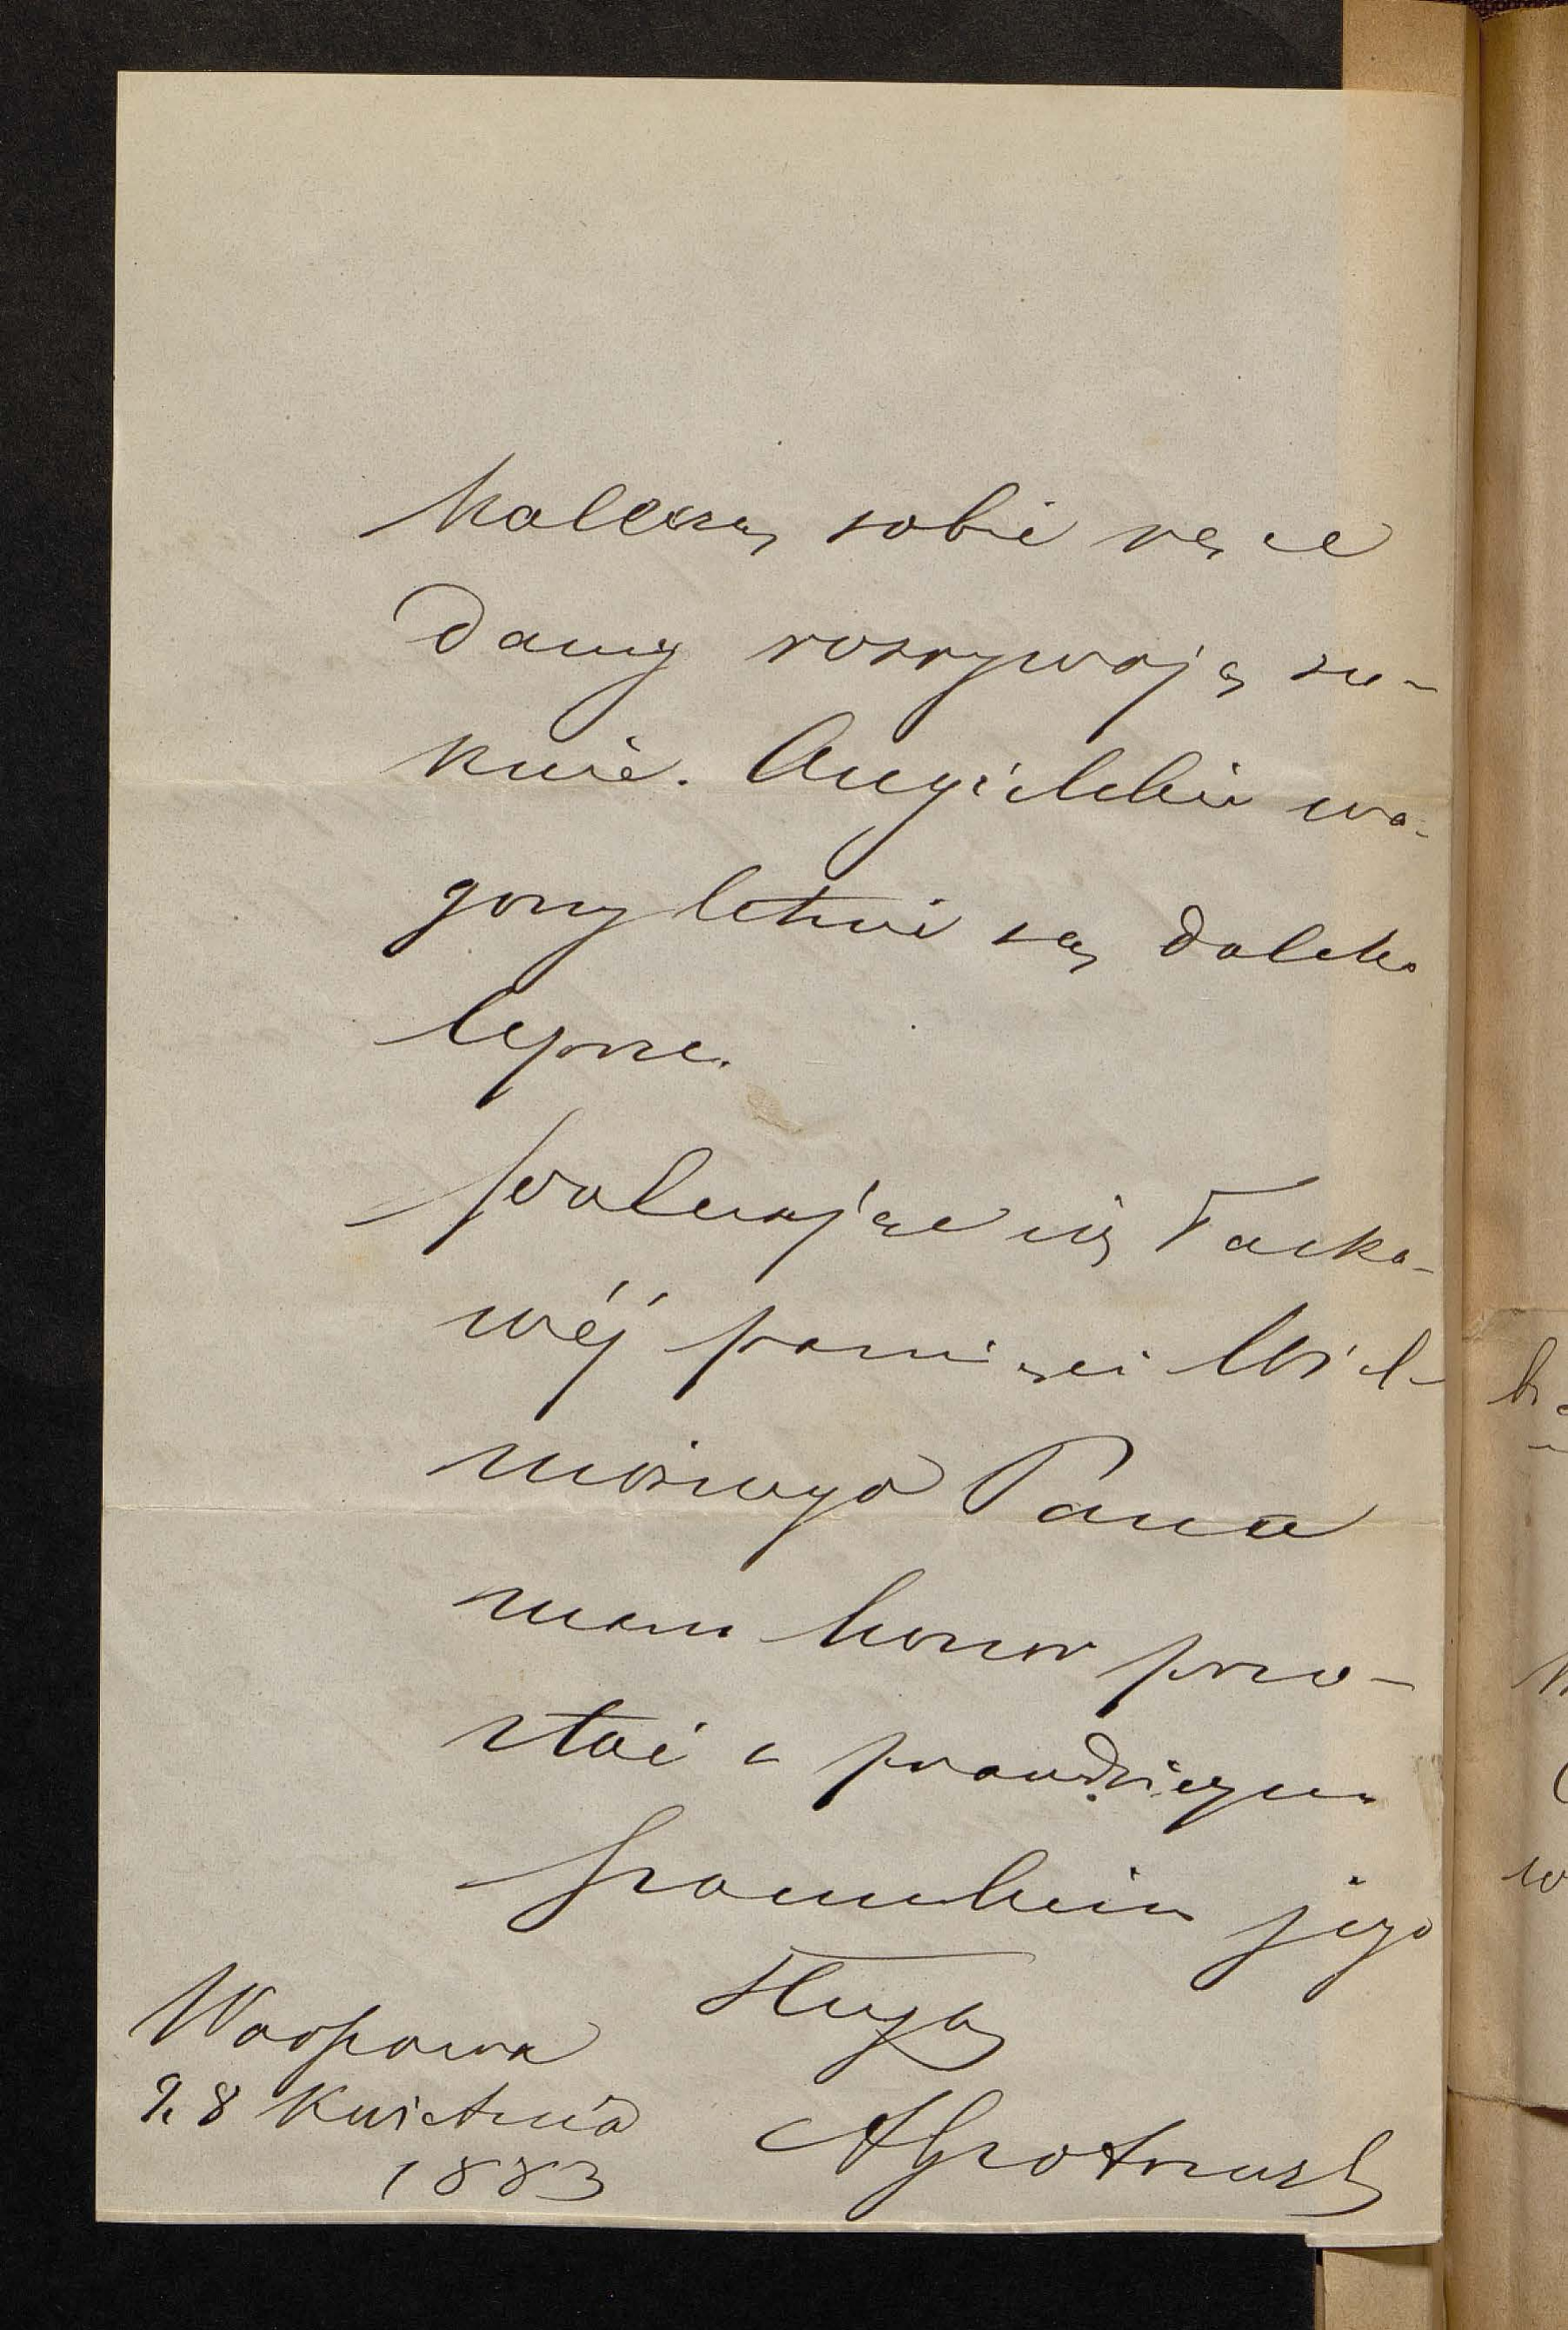 kaleczą sobie ręce
damy rozrywają su-
knie. Angielskie wa-
gony letnie są daleko
lepsze.
Polecając się łaska-
wéj pamięci Wiel-
możnego Pana
mam honor pozo-
stać z prawdziwym
szacunkiem jego
sługą
Warszawa
d. 8 Kwietnia
1883